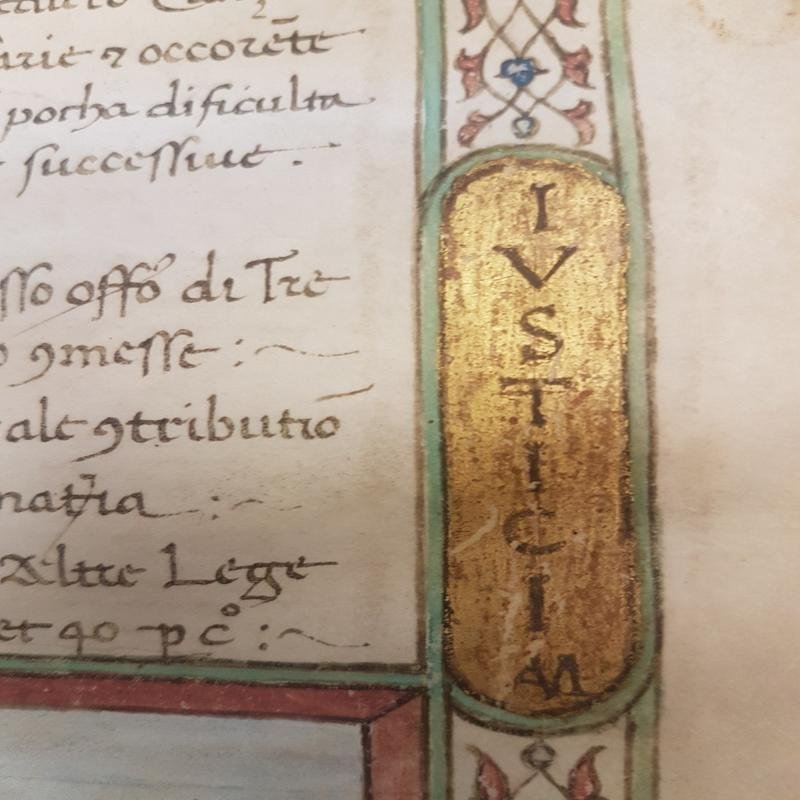 arie ⁊ occorēte
pocha dificulta
successiue .
sso offo di Tre
ꝯmesse :~
ale ꝯtributiō
Altre Lege
et 40 p cº :~
I
V
S
T
I
C
I
AM